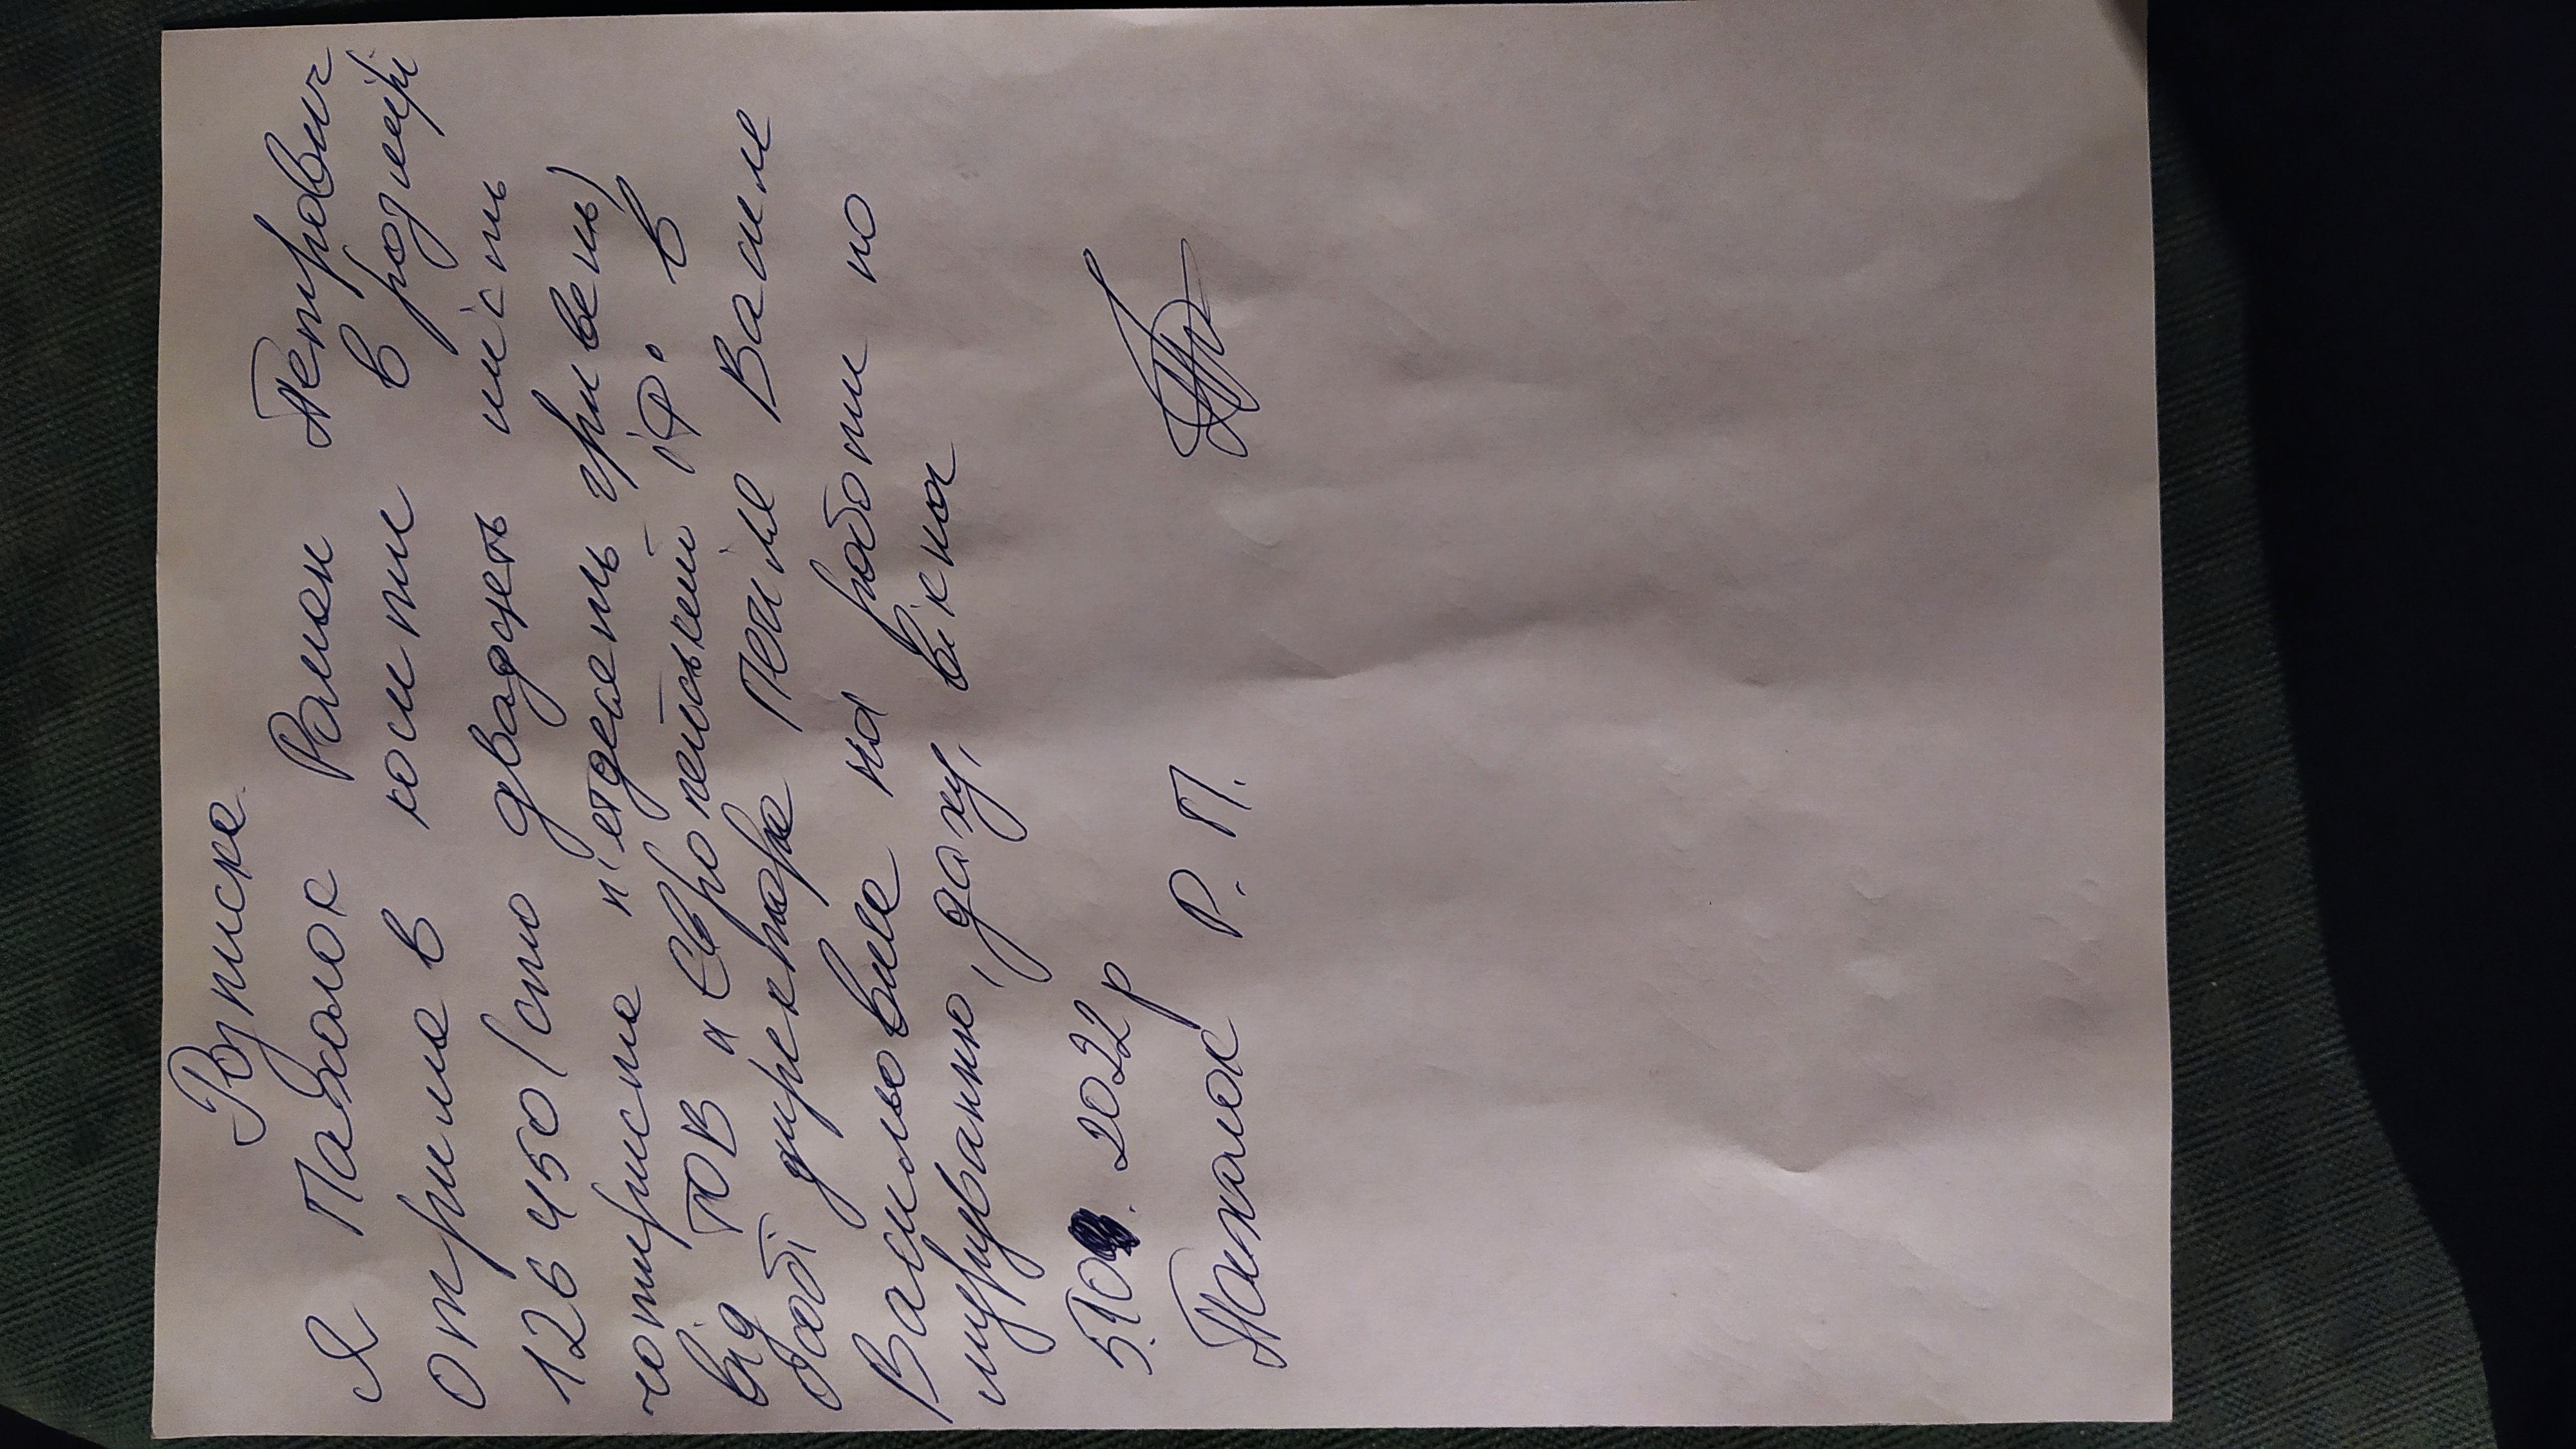 Розписка.
Я Пахолок Роман Петрович
отримав кошти в розмірі
126450 (сто двадцять шість
чотириста п'ятдесять гривень)
від ТОВ "Європейський ІР" в
особі директора Печіля Василя
Васильовича на роботи по
муруванню, даху, вікна
5.10. 2022р
Пахолок Р. П.